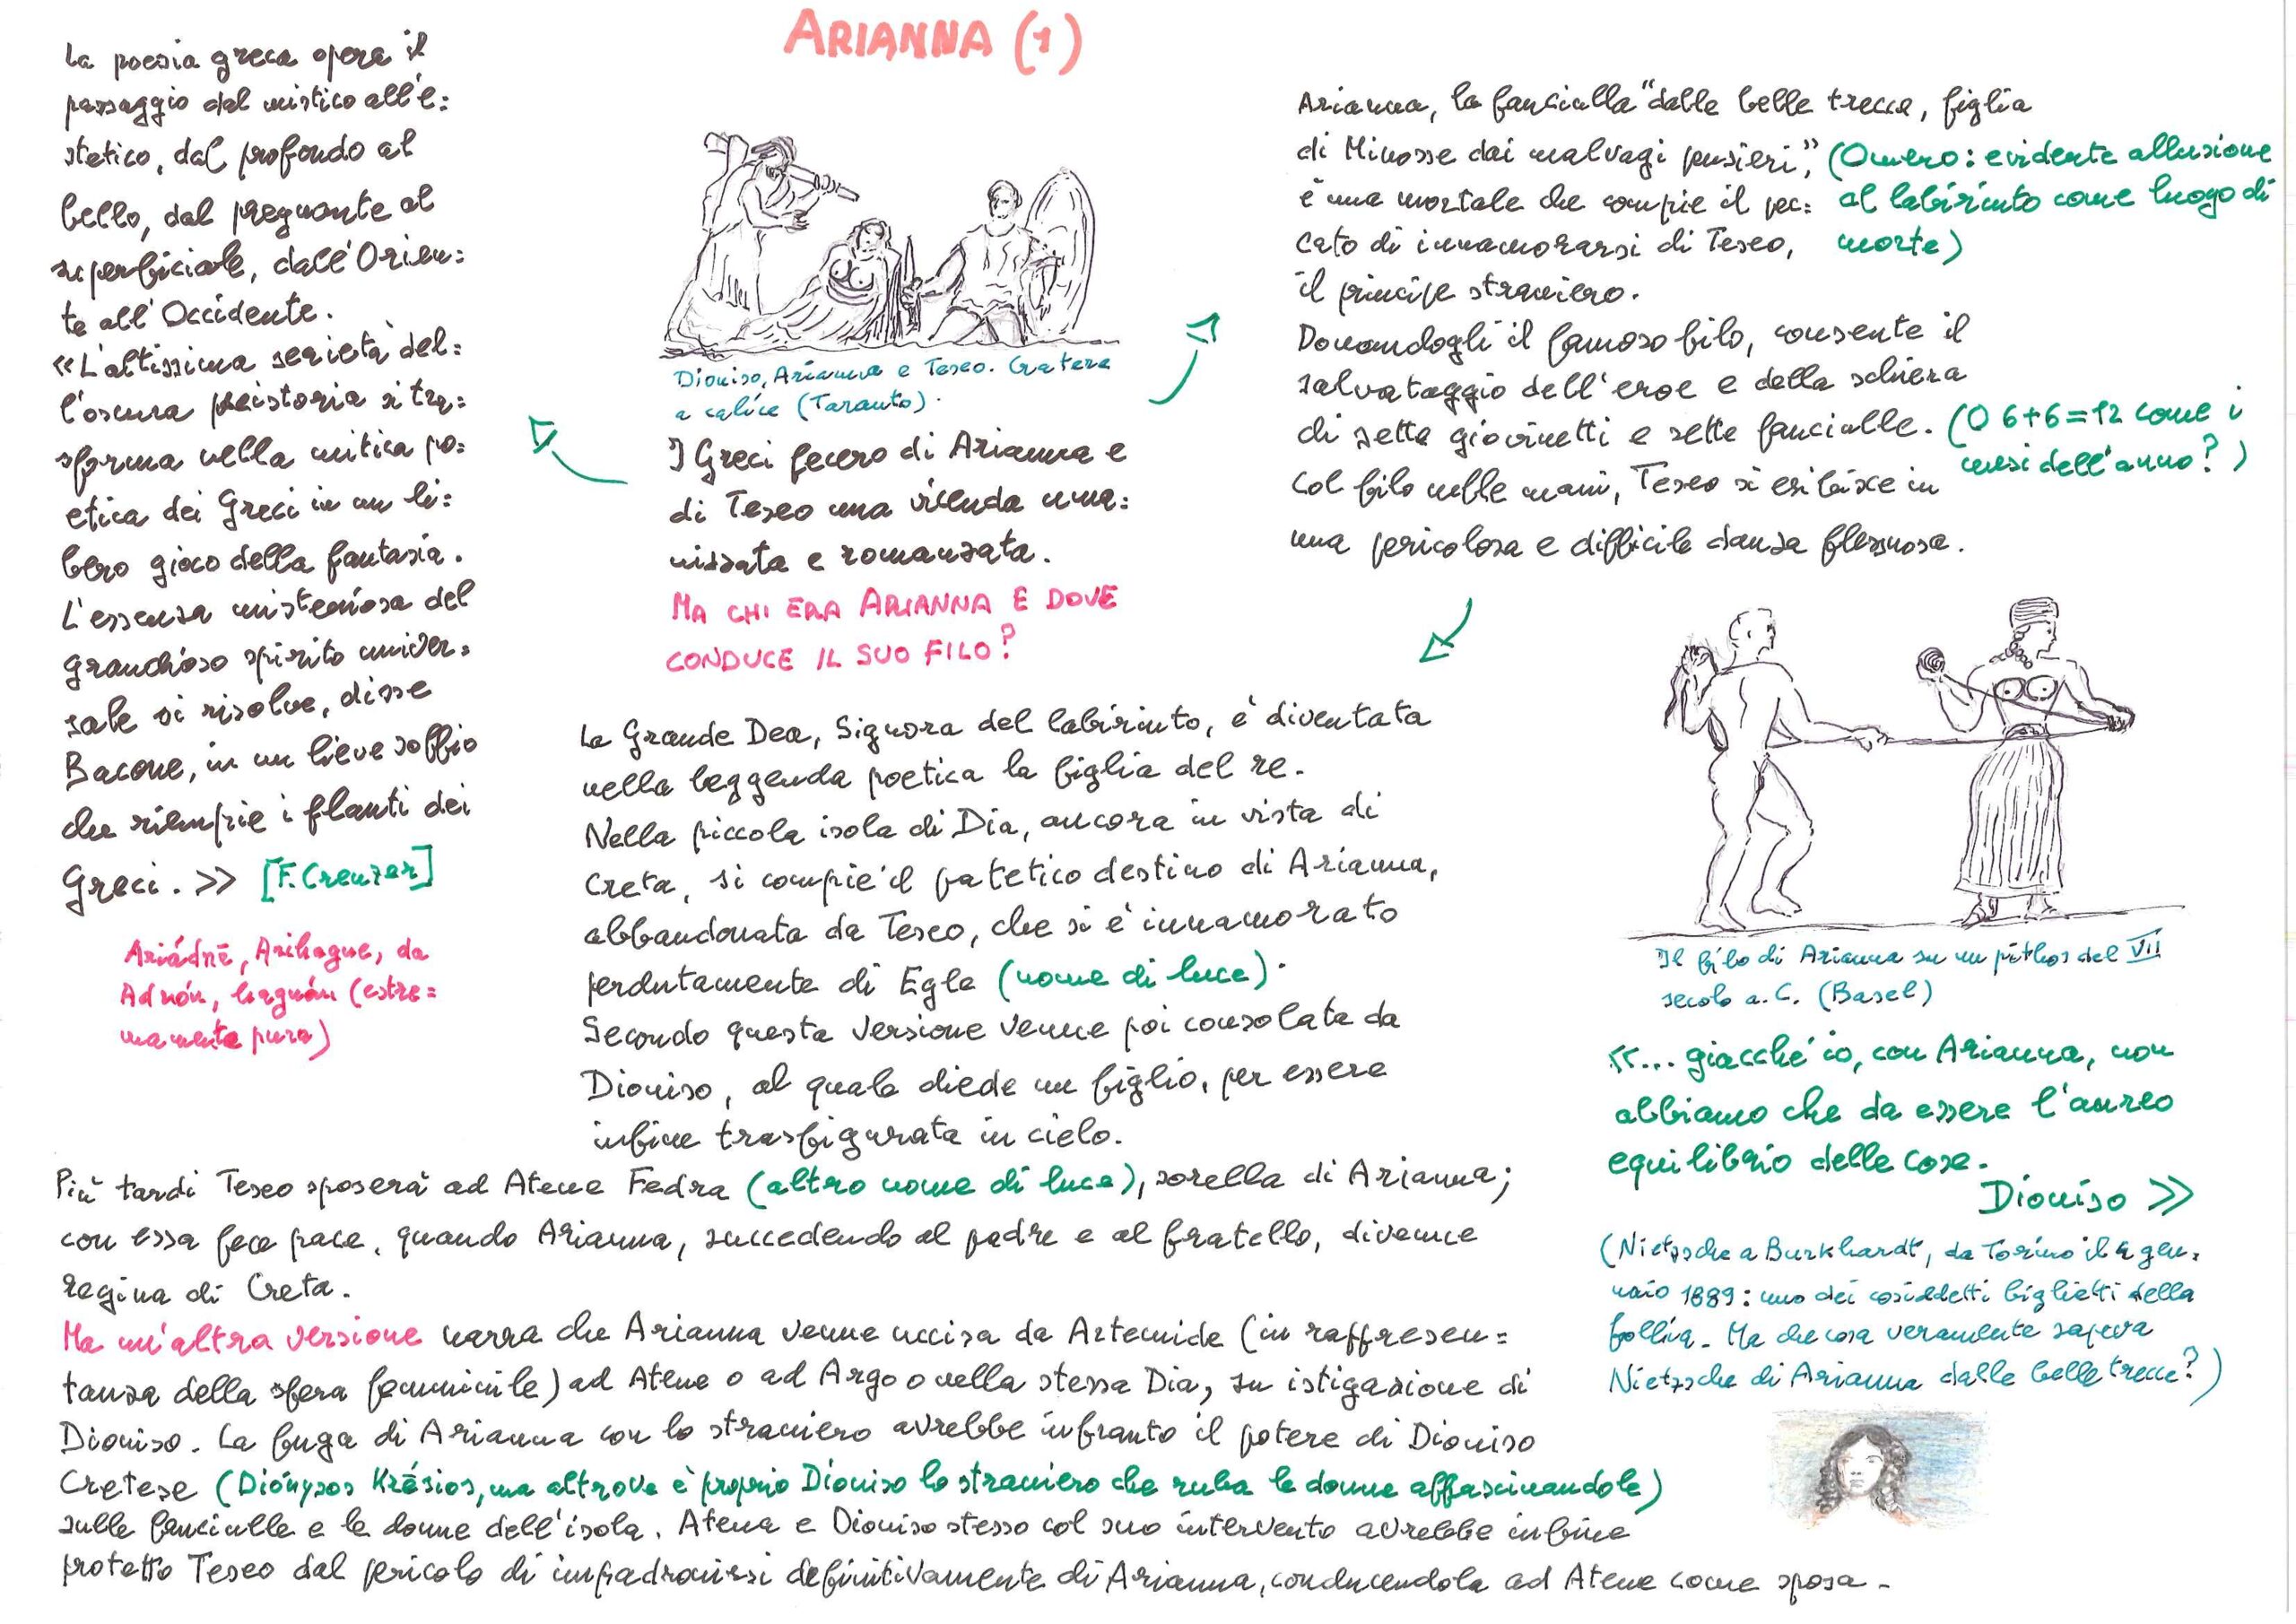 ARIANNA (1)
La poesia greca opera il
passaggio dal mistico all'e=
stetico, dal profondo al
bello, dal pregnante al
superficiale, dall'Orien=
te all'Occidente.
«L'altissima serietà del=
l'oscura preistoria si tra=
sforma nella mitica po=
etica dei Greci in un li=
bero gioco della fantasia.
L'essenza misteriosa del
grandioso spirito univer=
sale si risolve, disse
Bacone, in un lieve soffio
che riempie i flauti dei
Greci.» [F. Creuzer]
Ariádnē, Arihagne, da
Adnón, hagnón (estre=
mamente pura)
Dioniso, Arianna e Teseo. Cratere
a calice (Taranto).
I Greci fecero di Arianna e
di Teseo una vicenda uma=
nizzata e romanzata.
MA CHI ERA ARIANNA E DOVE
CONDUCE IL SUO FILO?
Arianna, la fanciulla "dalle belle trecce, figlia
di Minosse dai malvagi pensieri", (Omero: evidente allusione
è una mortale che compie il pec= al labirinto come luogo di
cato di innamorarsi di Teseo, morte)
il principe straniero.
Donandogli il famoso filo, consente il
salvataggio dell'eroe e della schiera
di sette giovinetti e sette fanciulle. (O 6+6=12 come i
mesi dell'anno?)
Col filo nelle mani, Teseo si esibisce in
una pericolosa e difficile danza flessuosa.
La Grande Dea, Signora del labirinto, è diventata
nella leggenda poetica la figlia del re.
Nella piccola isola di Dia, ancora in vista di
Creta, si compie il patetico destino di Arianna,
abbandonata da Teseo, che si è innamorato
perdutamente di Egle (nome di luce).
Secondo questa versione venne poi consolata da
Dioniso, al quale diede un figlio, per essere
infine trasfigurata in cielo.
Più tardi Teseo sposerà ad Atene Fedra (altro nome di luce), sorella di Arianna;
con essa fece pace, quando Arianna, succedendo al padre e al fratello, divenne
regina di Creta.
Ma un'altra versione narra che Arianna venne uccisa da Artemide (in rappresen=
tanza della sfera femminile) ad Atene o ad Argo o nella stessa Dia, su istigazione di
Dioniso. La fuga di Arianna con lo straniero avrebbe infranto il potere di Dioniso
Cretese (Diónysos Krésios, ma altrove è proprio Dioniso lo straniero che ruba le donne affascinandole)
sulle fanciulle e le donne dell'isola. Atena e Dioniso stesso col suo intervento avrebbe infine
protetto Teseo dal pericolo di impadronirsi definitivamente di Arianna, conducendola ad Atene come sposa.
Il filo di Arianna su un pithos del VII
secolo a.C. (Basel)
«... giacché io, con Arianna, non
abbiamo che da essere l'aureo
equilibrio delle cose.
Dioniso»
(Nietzsche a Burkhardt, da Torino il 4 gen=
naio 1889: uno dei cosiddetti biglietti della
follia. Ma che cosa veramente sapeva
Nietzsche di Arianna dalle belle trecce?)